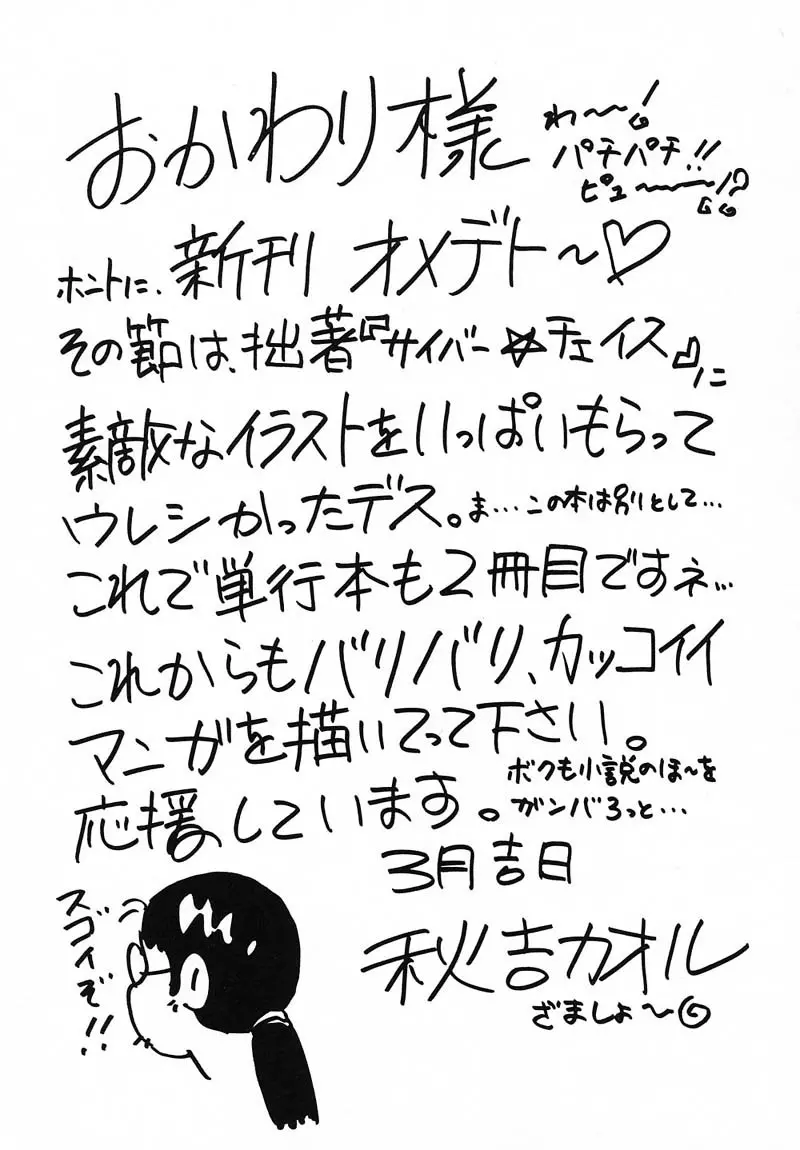 おかわり様
わ〜〜!
パチパチ!!
ピュ〜〜〜!?
ホントに、新刊 オメデト〜♡
その節は、拙著『サイバー☆チェイス』に
素敵なイラストをいっぱいもらって
ウレシかったデス。ま…この本は別として…
これで単行本も2冊目ですネ…
これからもバリバリ、カッコイイ
マンガを描いてって下さい。
応援しています。
ボクも小説のほ〜を
ガンバろっと…
3月吉日
秋吉カオル
ざましょ〜
スゴイぞ!!